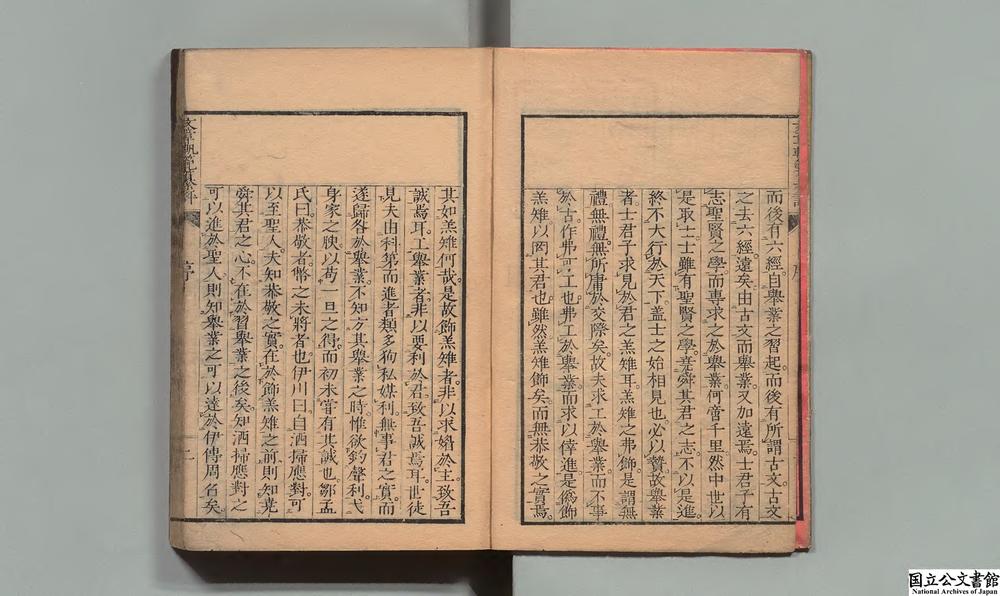 而後有六經自舉業之習起而後有所謂古文古文
之去六經遠矣由古文而舉業又加遠焉士君子有
志聖賢之學而專求之於舉業何啻千里然中世以
是取士士雖有聖賢之學堯舜其君之志不以是進
終不大行於天下蓋士之始相見也必以贄故舉業
者士君子求見於君之羔雉耳羔雉之弗飾是謂無
禮無禮無所庸於交際矣故夫求工於舉業而不事
於古作弗可工也弗工於舉業而求以倖進是僞飾
羔雉以罔其君也雖然羔雉飾矣而無恭敬之實焉
其如羔雉何哉是故飾羔雉者非以求媚於主致吾
誠焉耳工舉業者非以要利於君致吾誠焉耳世徒
見夫由科第而進者類多狥私媒利無事君之實而
遂歸咎於舉業不知方其舉業之時惟欲釣聲利弋
身家之腴以苟一旦之得而初未甞有其誠也鄒孟
氏曰恭敬者幣之未將者也伊川曰自洒掃應對可
以至聖人夫知恭敬之實在於飾羔雉之前則知堯
舜其君之心不在於習舉業之後矣知洒掃應對之
可以進於聖人則知舉業之可以達於伊傅周召矣
序
二
国立公文書館
National Archives of Japan